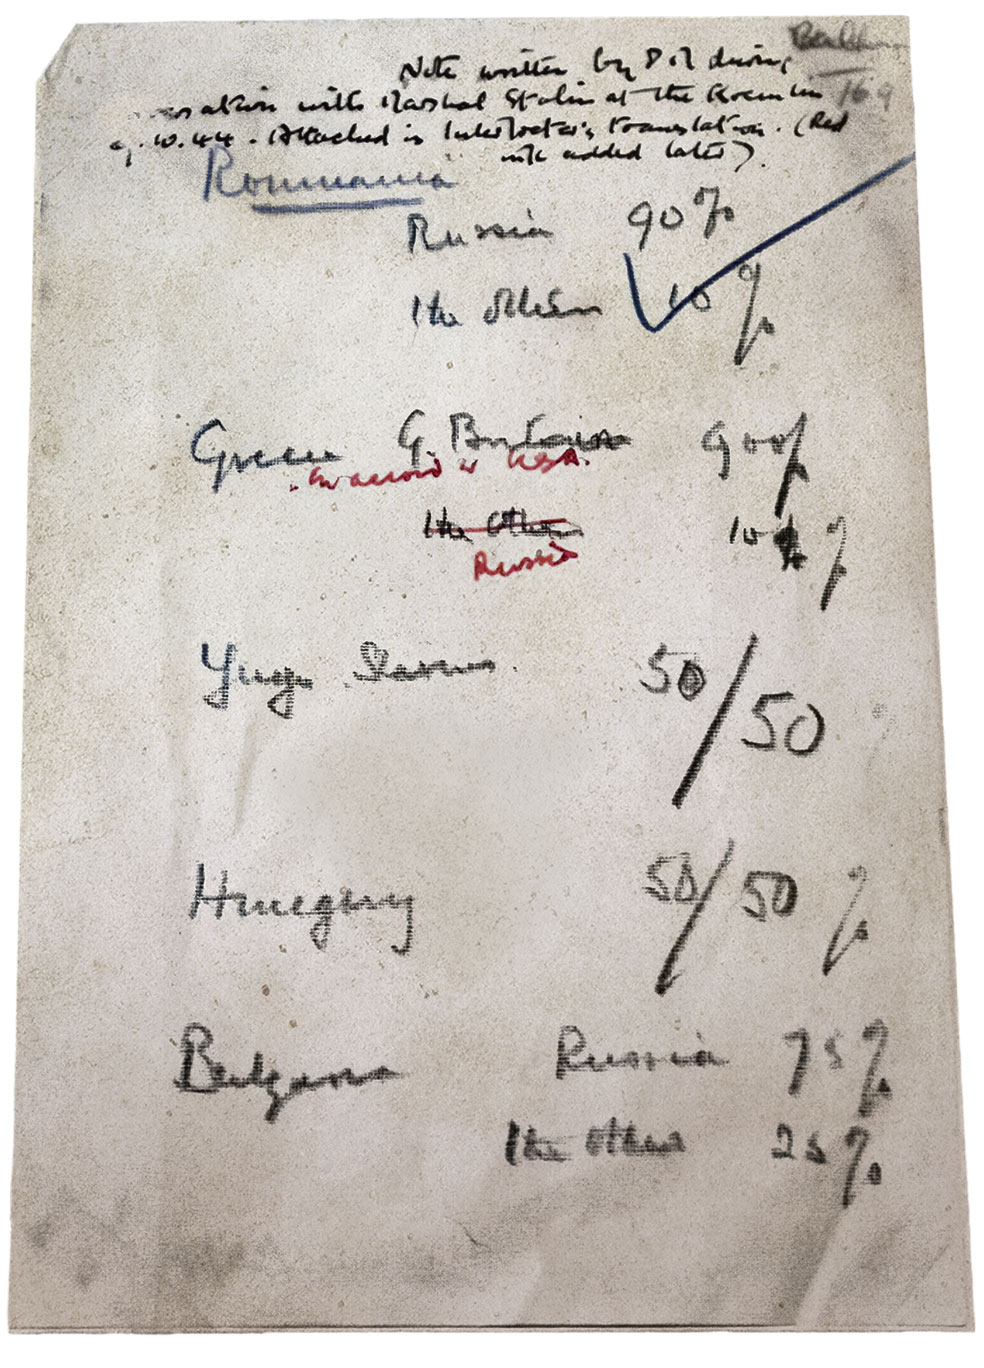 Note written by P M during
rsation with Marshal Stalin at the Kremlin
9.10.44. Attached is Interpreter's translation. (Red
ink added later).
Roumania
Russia 90%
The others 10%
Greece G. Britain 90%
in accord w USA.
The Others 10% %
Russia
Yugo Slavia 50/50
Hungary 50/50 %
Bulgaria Russia 75%
The others 25%